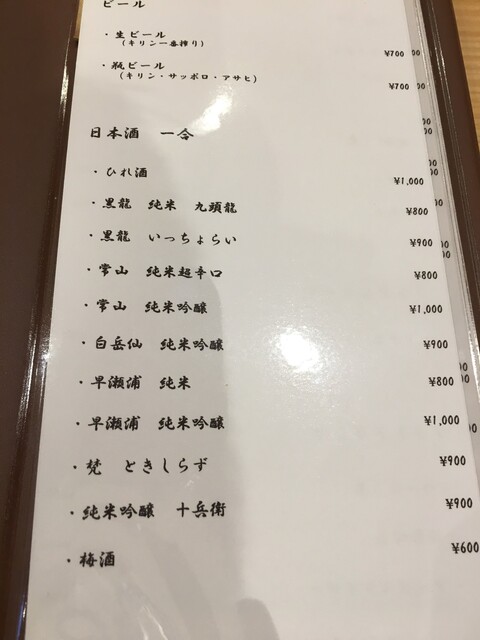 ビール
・生ビール
（キリン一番搾り）
¥700
・瓶ビール
（キリン・サッポロ・アサヒ）
¥700
日本酒　一合
・ひれ酒 ¥1,000
・黒龍　純米　九頭龍 ¥800
・黒龍　いっちょらい ¥900
・常山　純米超辛口 ¥800
・常山　純米吟醸 ¥1,000
・白岳仙　純米吟醸 ¥900
・早瀬浦　純米 ¥800
・早瀬浦　純米吟醸 ¥1,000
・梵　ときしらず ¥900
・純米吟醸　十兵衛 ¥900
・梅酒 ¥600